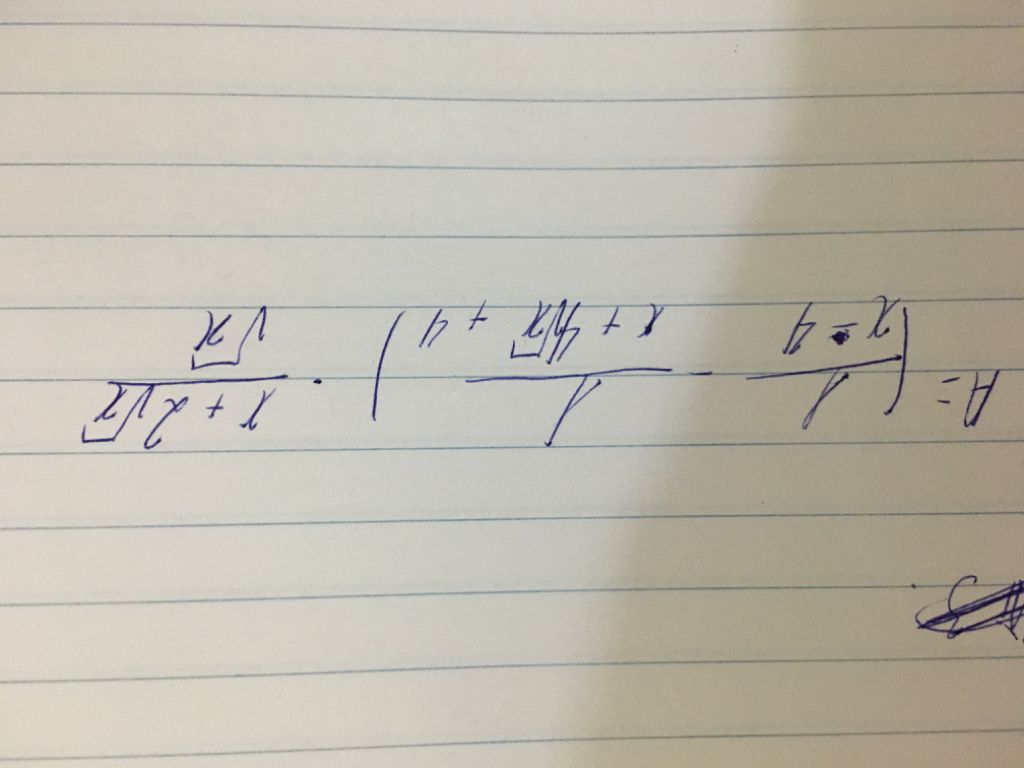 A = (1/(x - 4) - 1/(x + 4√x + 4)) · (x + 2√x)/√x